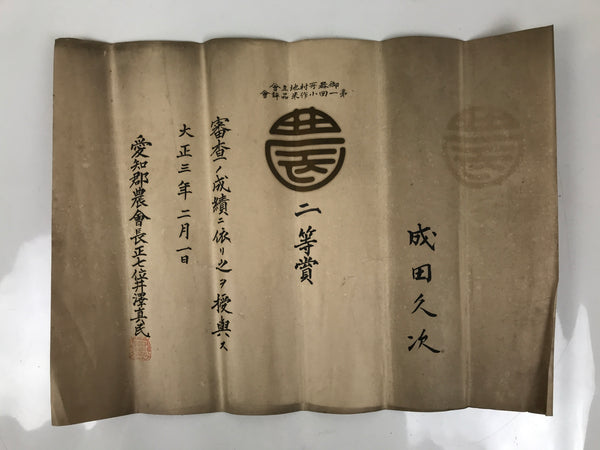 成田久次
御器所村地主會
第一回小作米品評會
農
二等賞
審査ノ成績ニ依リ之ヲ授與ス
大正三年二月一日
愛知郡農會長正七位井澤真民